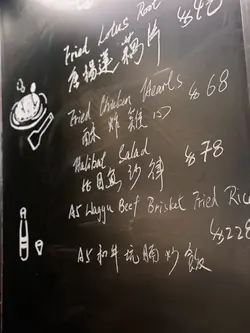 Fried Lotus Root
唐揚蓮藕片
Fried Chicken Hearts $68
酥炸雞心
Halibut Salad $78
比目魚沙律
A5 Wagyu Beef Brisket Fried Rice
$228
A5 和牛坑腩炒飯